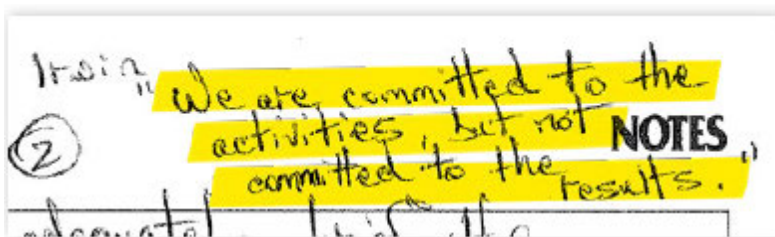 Irwin "We are committed to the
② activities, but not NOTES
committed to the results."
adequately